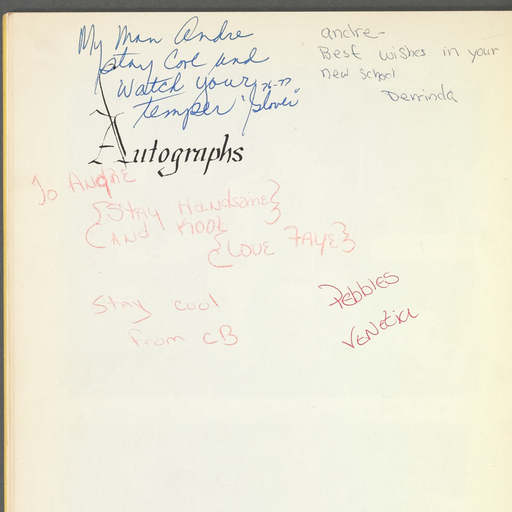 My Man Andre
stay Cool and
Watch your 76-77
temper "plover"
andre-
Best wishes in your
new school
Derrinda
Autographs
To Andre
{Stay Handsome}
{and Kool
{Love Faye}
Stay cool
From CB
Pebbles
Venetia